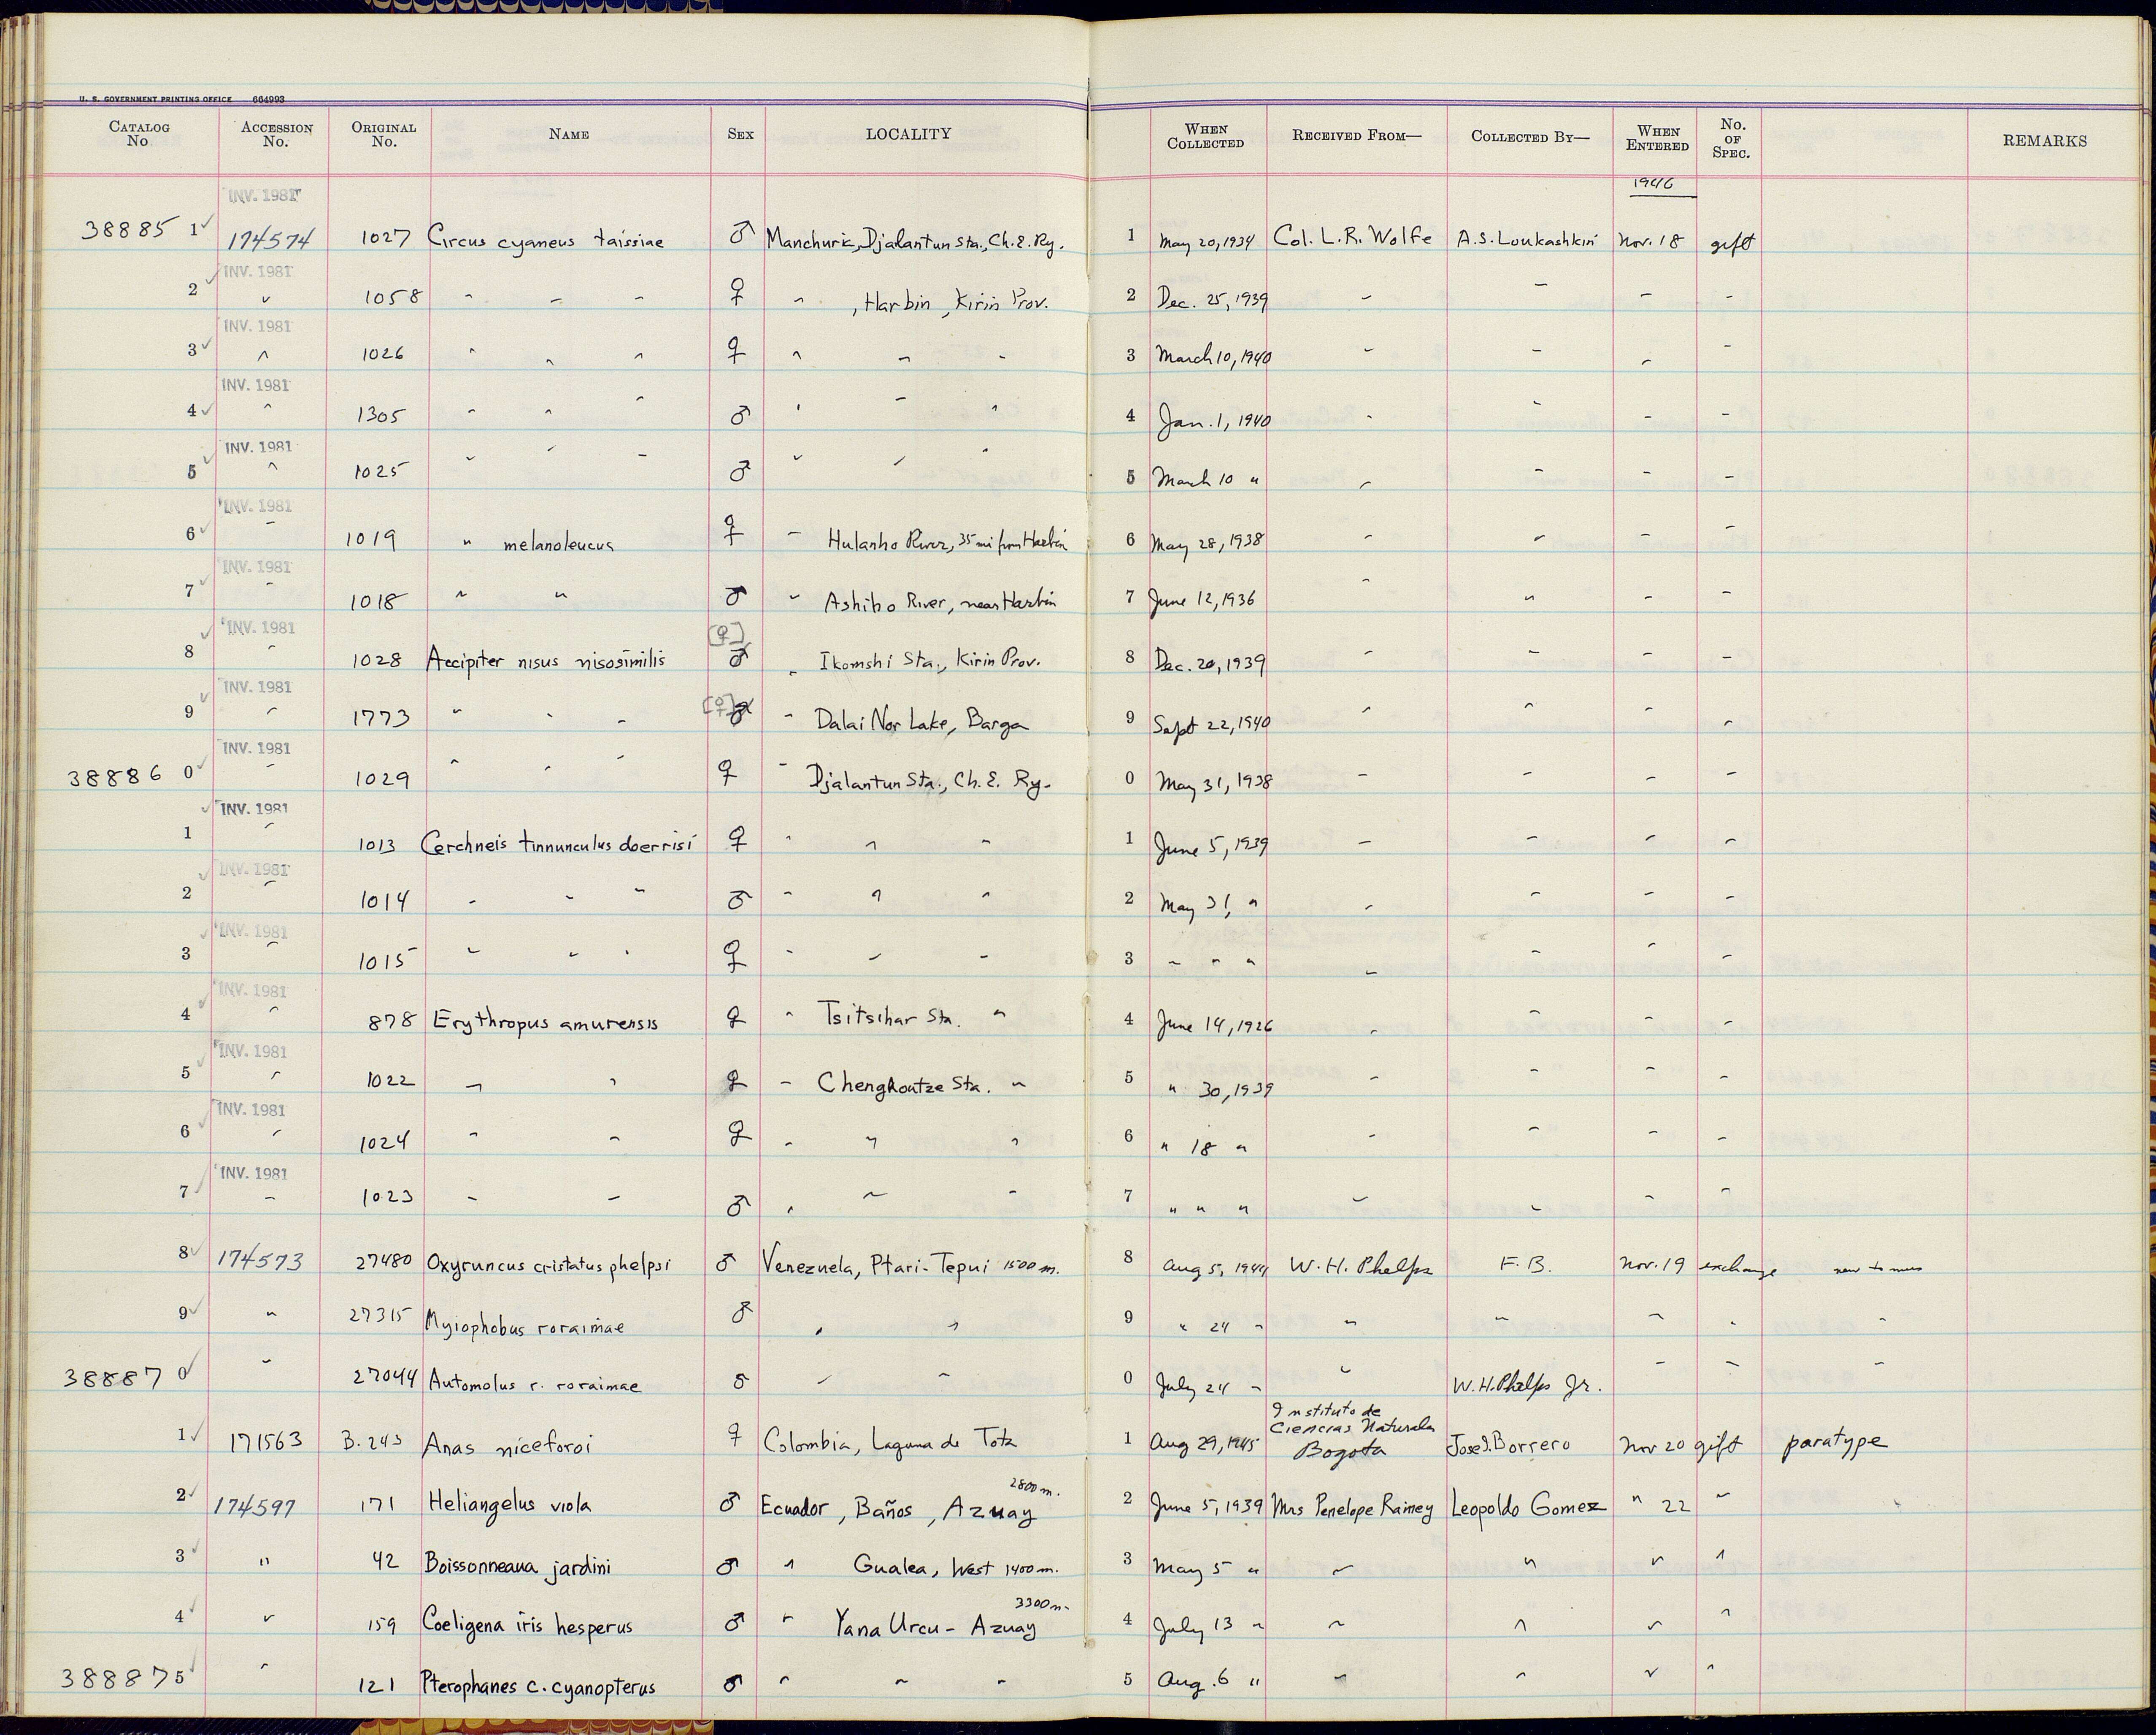 U. S. GOVERNMENT PRINTING OFFICE 664993
CATALOG No. ACCESSION No. ORIGINAL No. NAME SEX LOCALITY WHEN COLLECTED RECEIVED FROM— COLLECTED BY— WHEN ENTERED No. OF SPEC. REMARKS
1946
INV. 1981
38885 1 174574 1027 Circus cyaneus taissiae ♂ Manchuria, Djalantun Sta., Ch. E. Ry. 1 May 20, 1934 Col. L. R. Wolfe A. S. Loukashkin Nov. 18 gift
INV. 1981
2 " 1058 " " " ♀ " , Harbin, Kirin Prov. 2 Dec. 25, 1939 " " " "
INV. 1981
3 " 1026 " " " ♀ " " " 3 March 10, 1940 " " " "
INV. 1981
4 " 1305 " " " ♂ " " " 4 Jan. 1, 1940 " " " "
INV. 1981
5 " 1025 " " " ♂ " " " 5 March 10 " " " " "
INV. 1981
6 " 1019 " melanoleucus ♀ " Hulanho River, 35 mi from Harbin 6 May 28, 1938 " " " "
INV. 1981
7 " 1018 " " ♂ " Ashiho River, near Harbin 7 June 12, 1936 " " " "
INV. 1981 [♀]
8 " 1028 Accipiter nisus nisosimilis ♂ " Ikomshi Sta., Kirin Prov. 8 Dec. 20, 1939 " " " "
INV. 1981
9 " 1773 " " " [♀] ♂ " Dalai Nor Lake, Barga 9 Sept 22, 1940 " " " "
INV. 1981
38886 0 " 1029 " " " ♀ " Djalantun Sta., Ch. E. Ry. 0 May 31, 1938 " " " "
INV. 1981
1 " 1013 Cerchneis tinnunculus doerrisi ♀ " " " 1 June 5, 1939 " " " "
INV. 1981
2 " 1014 " " " ♂ " " " 2 May 31, " " " " "
INV. 1981
3 " 1015 " " " ♀ " " " 3 " " " " " " "
INV. 1981
4 " 878 Erythropus amurensis ♀ " Tsitsihar Sta. " 4 June 14, 1926 " " " "
INV. 1981
5 " 1022 " " ♀ " Chengkoutze Sta. " 5 " 30, 1939 " " " "
INV. 1981
6 " 1024 " " ♀ " " " 6 " 18 " " " " "
INV. 1981
7 " 1023 " " ♂ " " " 7 " " " " " " "
8 174573 27480 Oxyruncus cristatus phelpsi ♂ Venezuela, Ptari-Tepui 1500 m. 8 Aug 5, 1944 W. H. Phelps F. B. Nov. 19 exchange new to mus
9 " 27315 Myiophobus roraimae ♂ " " 9 " 24 " " " " " "
38887 0 " 27044 Automolus r. roraimae ♂ " " 0 July 24 " " W. H. Phelps Jr. " " "
1 171563 B. 243 Anas niceforoi ♀ Colombia, Laguna de Tota 1 Aug 29, 1945 Instituto de Ciencias Naturales Bogota Jose I. Borrero Nov 20 gift paratype
2 174597 171 Heliangelus viola ♂ Ecuador, Baños, Azuay 2800 m. 2 June 5, 1939 Mrs Penelope Rainey Leopoldo Gomez " 22 "
3 " 42 Boissonneaua jardini ♂ " Gualea, West 1400 m. 3 May 5 " " " " "
4 " 159 Coeligena iris hesperus ♂ " Yana Urcu - Azuay 3300 m. 4 July 13 " " " " "
38887 5 " 121 Pterophanes c. cyanopterus ♂ " " " 5 Aug. 6 " " " " "